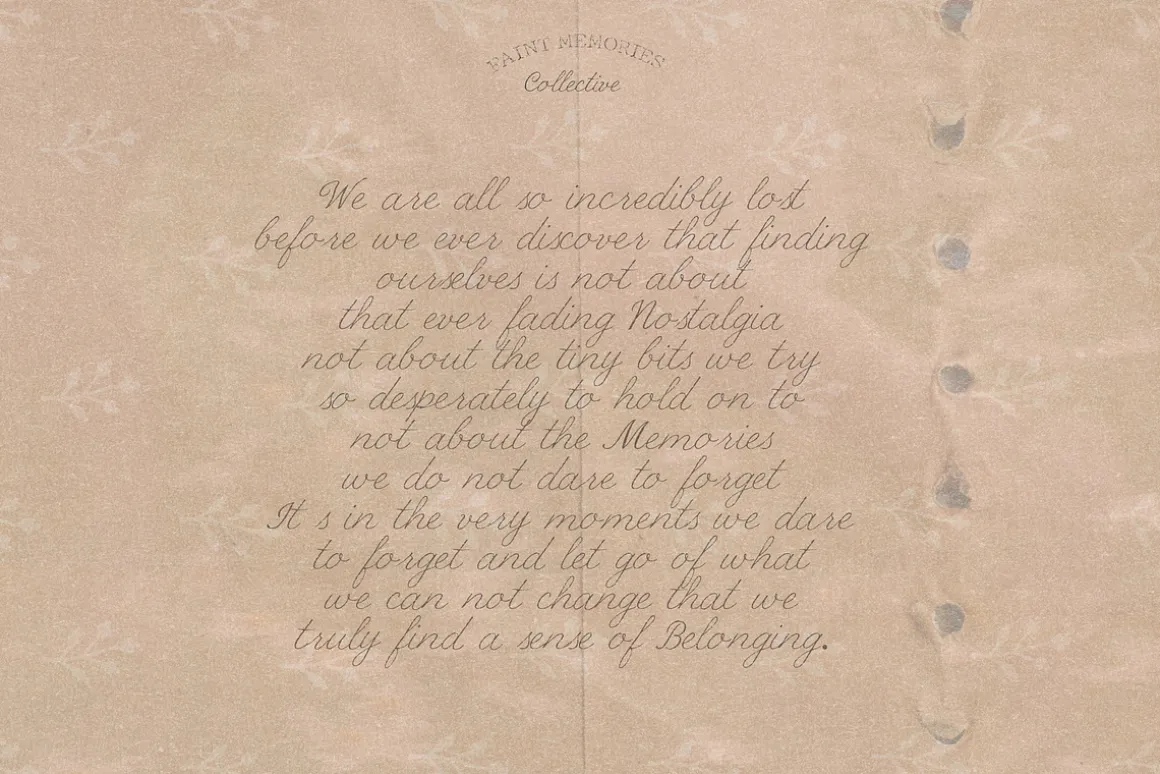 FAINT MEMORIES
Collective
We are all so incredibly lost
before we ever discover that finding
ourselves is not about
that ever fading Nostalgia
not about the tiny bits we try
so desperately to hold on to
not about the Memories
we do not dare to forget
It s in the very moments we dare
to forget and let go of what
we can not change that we
truly find a sense of Belonging.